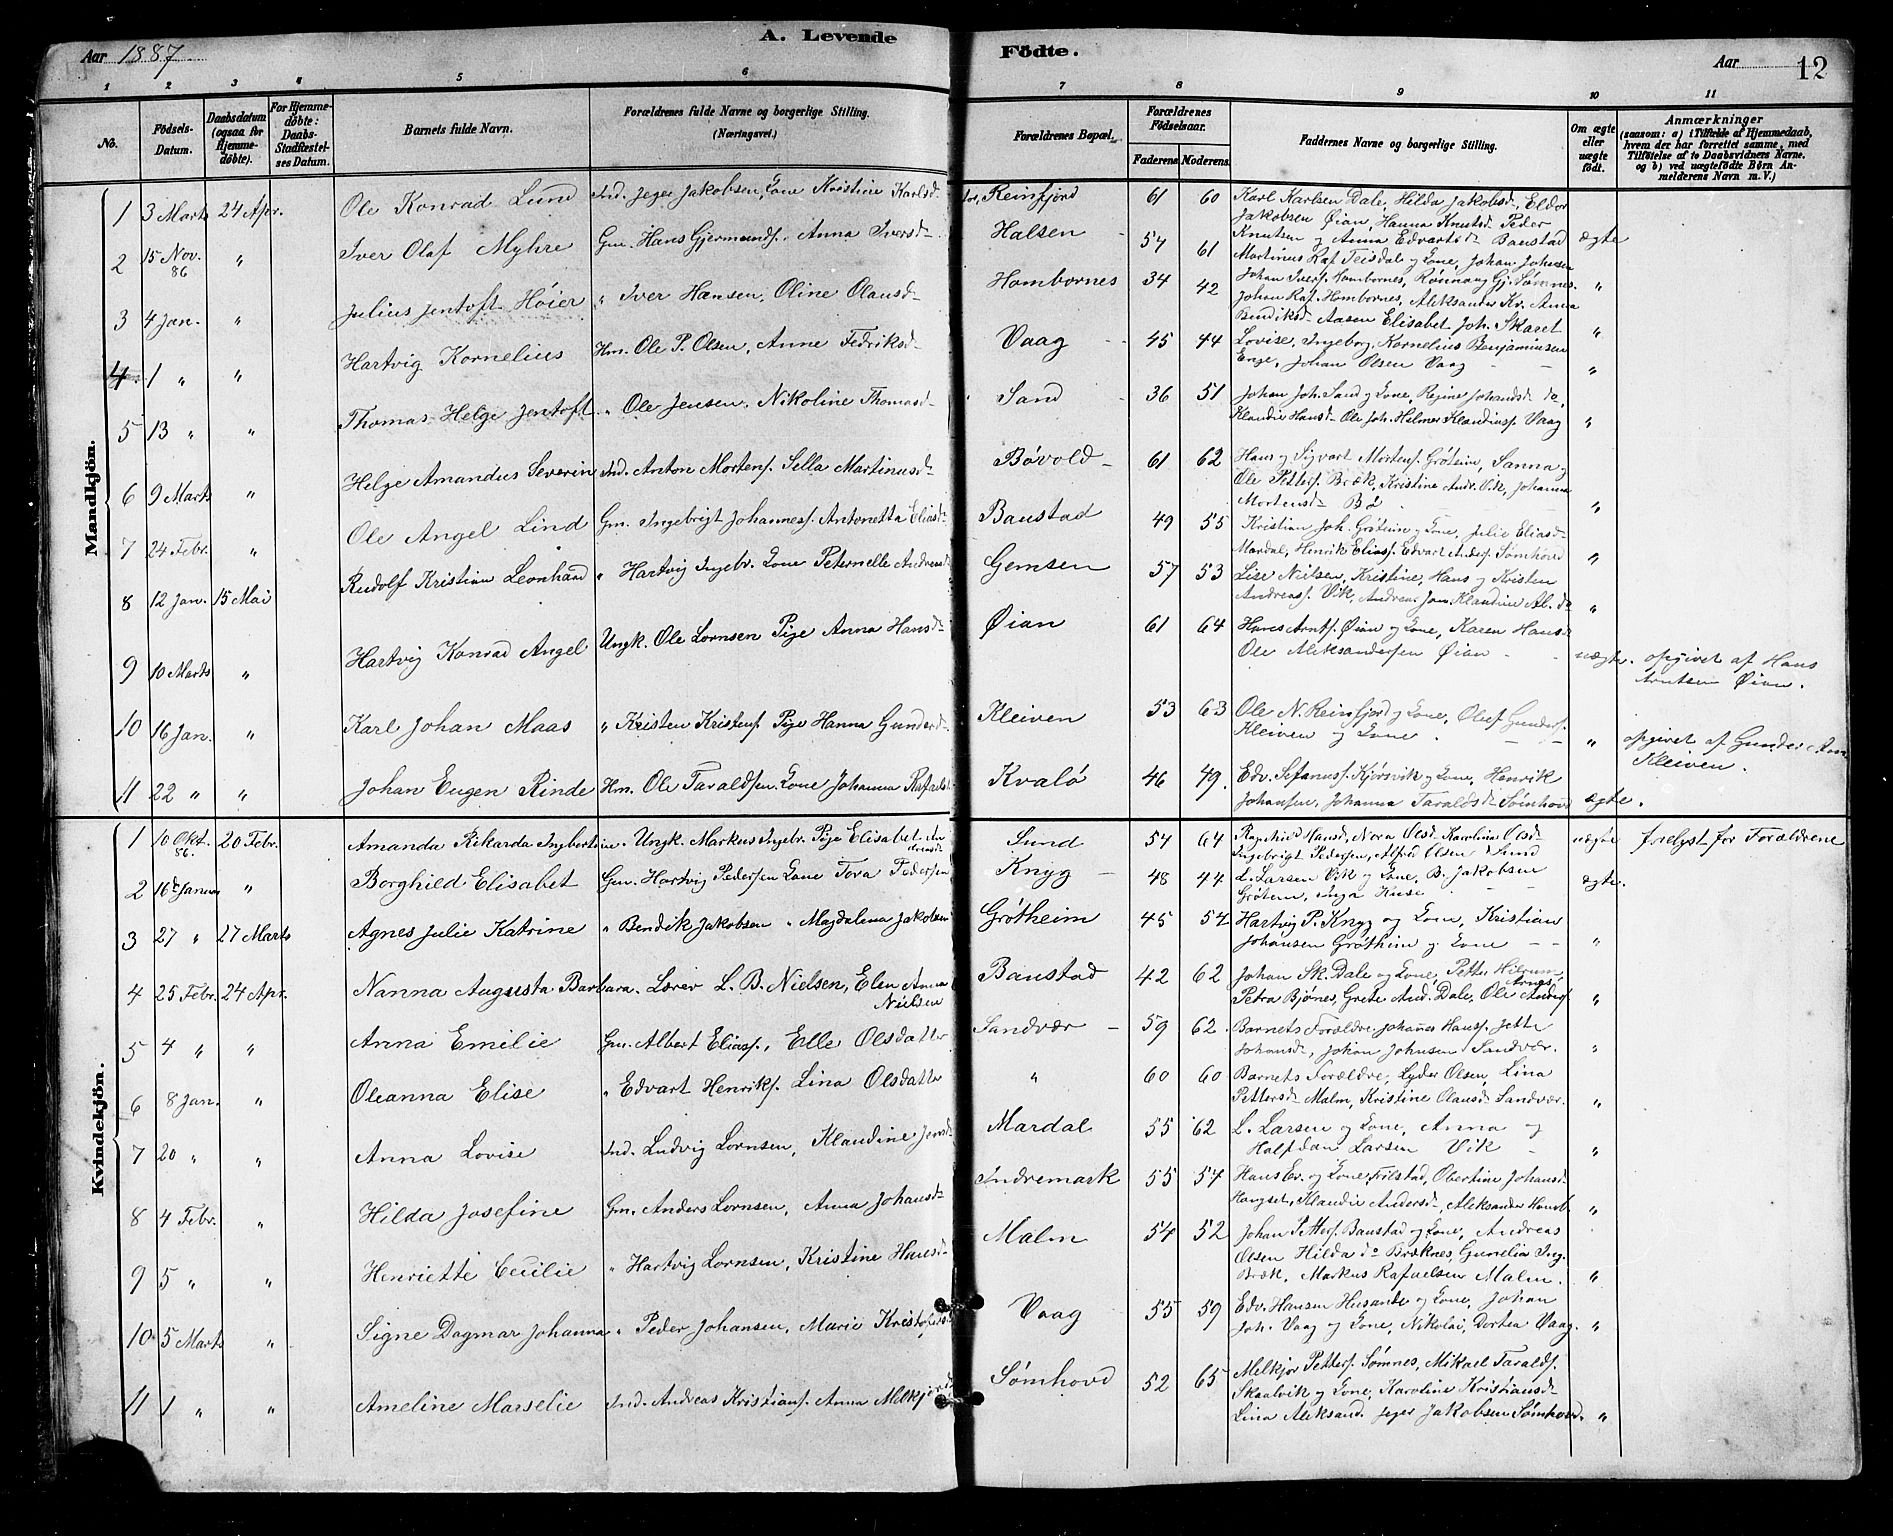 Aar 1887
A. Levende
Födte.
Aar
12
1 2 3 4 5 6 7 8 9 10 11
No.
Födsels-Datum.
Daabsdatum (ogsaa for Hjemmedöbte).
For Hjemmedöbte: Daabs-Stadfæstelses Datum.
Barnets fulde Navn.
Forældrenes fulde Navne og borgerlige Stilling. (Næringsvei.)
Forældrenes Bopæl.
Forældrenes Födselsaar.
Faderens. Moderens.
Faddernes Navne og borgerlige Stilling.
Om ægte eller uægte födt.
Anmærkninger
(saasom: a) i Tilfælde af Hjemmedaab, hvem der har forrettet samme, med Tilföielse af to Daabsvidners Navne. og b) ved uægtefödte Börn Anmelderens Navn m. V.)
Mandkjön.
1 3 Marts 24 Apr. Ole Konrad Lund Ind. Jeger Jakobsen, Kone Kristine Karlsd Reinsfjord 61 60 Karl Karlsen Dale, Hilda Jakobsd, Eldor Jakobsen Øian, Hanna Knutsd Peder
2 15 Nov. 86 " Iver Olaf Myhre Gm. Hans Gjermunds. Anna Iversd Halsen 54 61 Knutsen og Anna Edvartsd Baustad ægte
Martinus Raf. Teisdal og Kone, Johan Johnsen
3 4 Jan. " Julius Jentoft Höier " Iver Hansen, Oline Olausd Hombornes 34 42 Johan Ivers. Hombornes, Gj. Sömnes. "
Johan Raf. Hombornes, Aleksander Kr. Anna Bendiksd Aasen Elisabet Joh. Skaret "
4 1 " " Hartvig Kornelius Hm. Ole P. Olsen, Anne Fedriksd Vaag 45 44 Lovise, Ingeborg, Kornelius Benjaminsen Enge, Johan Olsen Vaag "
5 13 " " Thomas Helge Jentoft " Ole Jensen, Nikoline Thomasd Sand 36 51 Johan Joh. Sand og Kone, Regine Johansd do, Klaudie Hansd Ole Joh. Helmer Klaudius. Vaag "
6 9 Marts " Helge Amandus Severin Ind. Anton Mortens. Sella Martinusd Bövold 61 62 Hans og Sigvart Mortens. Grötheim, Sanna og Ole Petters. Bræk, Kristine Andr. Vik, Johanna Mortensd Bö "
7 24 Febr. " Ole Angel Lind Gm. Ingebrigt Johannes. Antonetta Eliasd Baustad 49 55 Kristian Joh. Grötheim og Kone, Julie Eliasd Mardal, Henrik Elias. Edvart Anders. Sömhovd "
8 12 Jan. 15 Mai Rudolf Kristian Leonhard " Hartvig Ingebr. Kone Peternelle Andreasd Gemsen 57 53 Lise Nielsen, Kristine, Hans og Kristen Andreas. Vik, Andreas Jan. Klaudine Al. do "
9 10 Marts " Hartvig Konrad Angel Ungk. Ole Lornsen Pige Anna Hansd Øian 61 64 Hans Arnts. Øian og Kone, Karen Hansd Ole Aleksandersen Øian uægte. opgivet af Hans Arntsen Øian.
10 16 Jan. " Karl Johan Maas " Kristen Kristens. Pige Hanna Gundersd Kleiven 53 63 Ole N. Reinsfjord og Kone, Oluf Gunders. Kleiven og Kone. " opgivet af Gunder Kleiven.
11 22 " " Johan Eugen Rinde Hm. Ole Taraldsen Kone Johanna Rafaelsd Kvalö 46 49. Edv. Stefanus. Kjörsvik og Kone, Henrik Johansen, Johanna Taraldsd Sömhovd ægte.
Kvindekjön.
1 10 Okt. 86. 20 Febr. Amanda Rikarda Ingbertine. Ungk. Markus Ingebr. Pige Elisabet Andreasd Sund 54 64 Ragnhild Hansd, Nora Olsd Karolina Olsd Ingebrigt Pedersen, Alfred Olsen Sund uægte frelyst for Forældrene
2 16de Januar " Borghild Elisabet Gm. Hartvig Pedersen Kone Tora Pedersen Knyg 48 44 L. Larsen Vik og Kone, B. Jakobsen Grötem, Inga Huse ægte.
3 27 " 27 Marts Agnes Julie Katrine " Bendik Jakobsen " Magdalena Jakobsen Grötheim 45 54 Hartvig P. Knyg og Kone, Kristian Johansen Grötheim og Kone "
4 25 Febr. 24 Apr. Nanna Augusta Barbara. Lærer L. B. Nielsen, Elen Anna Nielsen Baustad 42 62 Johan Sk. Dale og Kone, Petter Hilrum, Petra Bjönes, Grete And. Dale, Ole Anders "
5 4 " " Anna Emilie Gm. Albert Elias., Elle Olsdatter Sandvær 59 62. Barnets Forældre. Johanes Hans. Jette Johansd, Johan Johnsen Sandvær. "
6 8 Jan. " Oleanna Elise " Edvart Henriks. Lina Olsdatter " 60 60 Barnets Forældre, Lyder Olsen, Lina Pettersd Malm, Kristine Olausd Sandvær. "
7 20 " " Anna Lovise Ind. Ludvig Lornsen, Klaudine Jensd Mardal 55 62 L. Larsen og Kone, Anna og Halfdan Larsen Vik "
8 4 Febr. " Hilda Josefine Gm. Anders Lornsen, Anna Johansd Indremark 55 54 Hans Ev. og Kone, Frilstad, Obertine Johansd Hangset, Klaudie Andersd, Aleksander Homb. "
9 5 " " Henriette Cecilie " Hartvig Lornsen, Kristine Hansd Malm 54 52 Johan Petters. Baustad og Kone, Andreas Olsen Hilda do Bræknes, Gunelia Ing. Bræk, Markus Rafaelsen Malm. "
10 5 Marts " Signe Dagmar Johanna " Peder Johansen, Marie Kristofersd Vaag 55 59 Edv. Hansen Husande og Kone, Johan Joh. Vaag og Kone, Nikolai, Dortea Vaag. "
11 1 " " Ameline Marselie Ind. Andreas Kristians. Anna Melkjorsd Sömhovd 52 65 Melkjor Petters. Sömnes, Mikael Taralds. Skaalvik og Kone, Karoline Kristiansd Lina Aleksand. Jeger Jakobsen Sömhovd. "